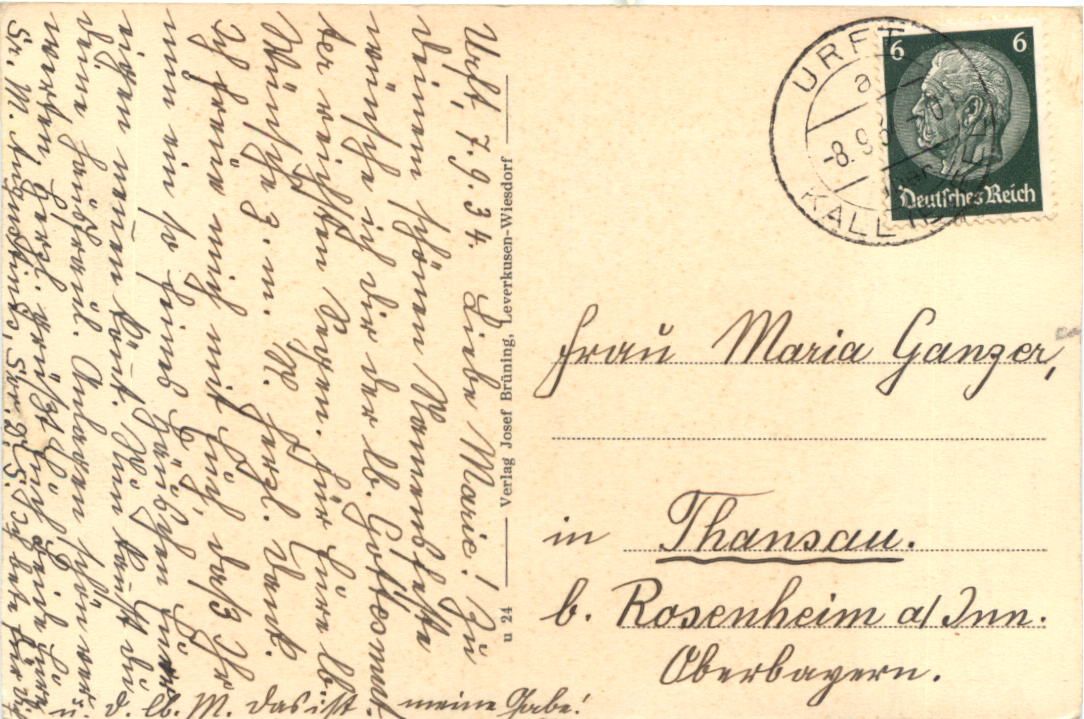 Urft, 7.9.34. Liebe Marie! Zu
deinem schönen Namensfeste
wünsche ich dir der lb. Gottesmut-
ter reichsten Segen. Für Eure lb.
Wünsche z. m. N. herzl. Dank.
Ich freue mich mit Euch, daß Ihr
nun ein so feines Häuschen Euer
eigen nennen könnt. Nun kannst du
deine
werden. Herzl. grüßt Euch beide Eure
Sr. M. Augustina,
u. d. lb. M. Das ist meine Gabe!
u 24 Verlag Josef Brüning, Leverkusen-Wiesdorf
URFT
a
-8.9.
KALL
6 6
Deutsches Reich
Frau Maria Ganzer,
in Thansau.
b. Rosenheim a/Inn.
Oberbayern.